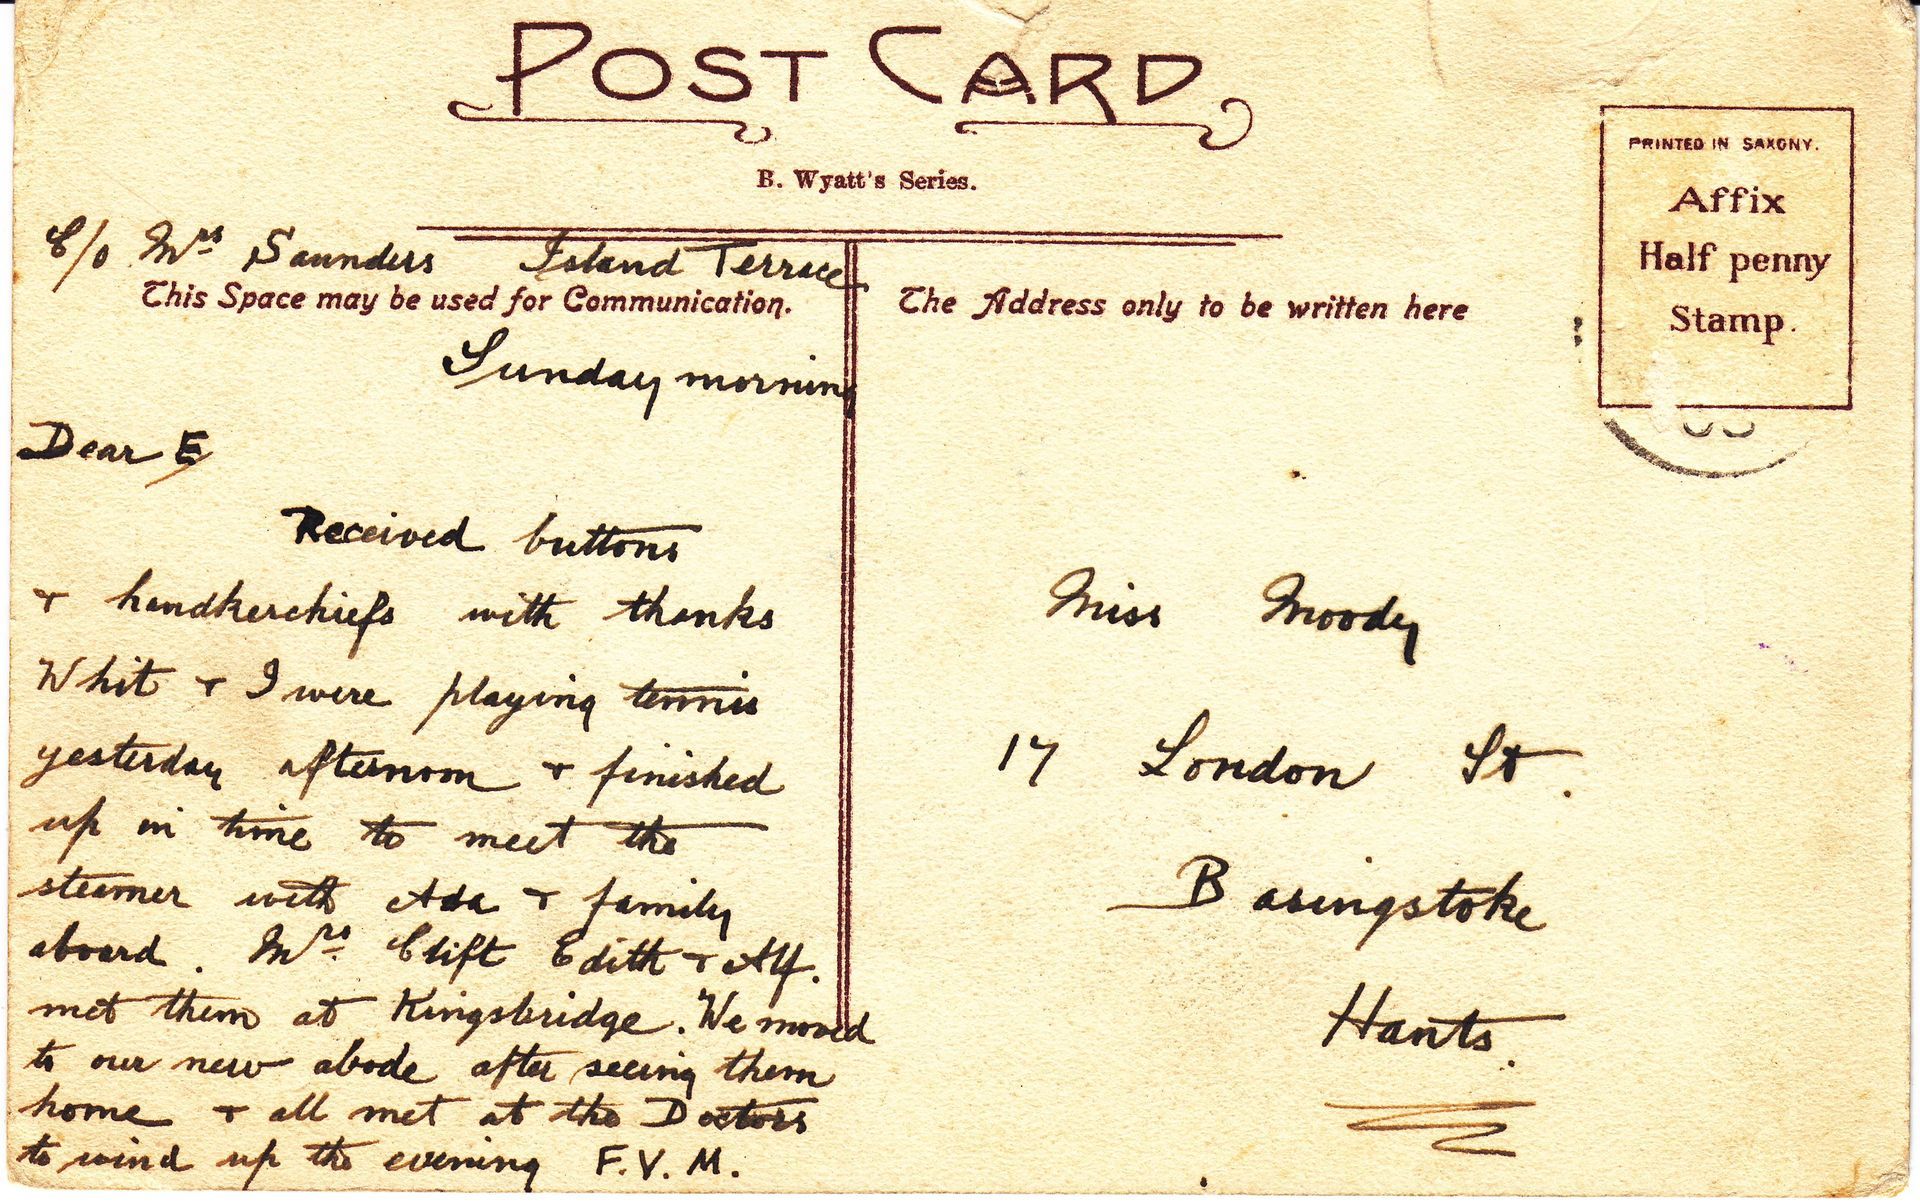 POST CARD
B. Wyatt's Series.
PRINTED IN SAXONY.
Affix
Half penny
Stamp.
C/o Mrs Saunders Island Terrace
This Space may be used for Communication.
Sunday morning
Dear E
Received buttons
& handkerchiefs with thanks
Whit & I were playing tennis
yesterday afternoon & finished
up in time to meet the
steamer with Ada & family
aboard. Mrs Clift Edith & Alf.
met them at Kingsbridge. We moved
to our new abode after seeing them
home & all met at the Doctors
to wind up the evening F.V.M.
The Address only to be written here
Miss Moody
17 London St.
Basingstoke
Hants.